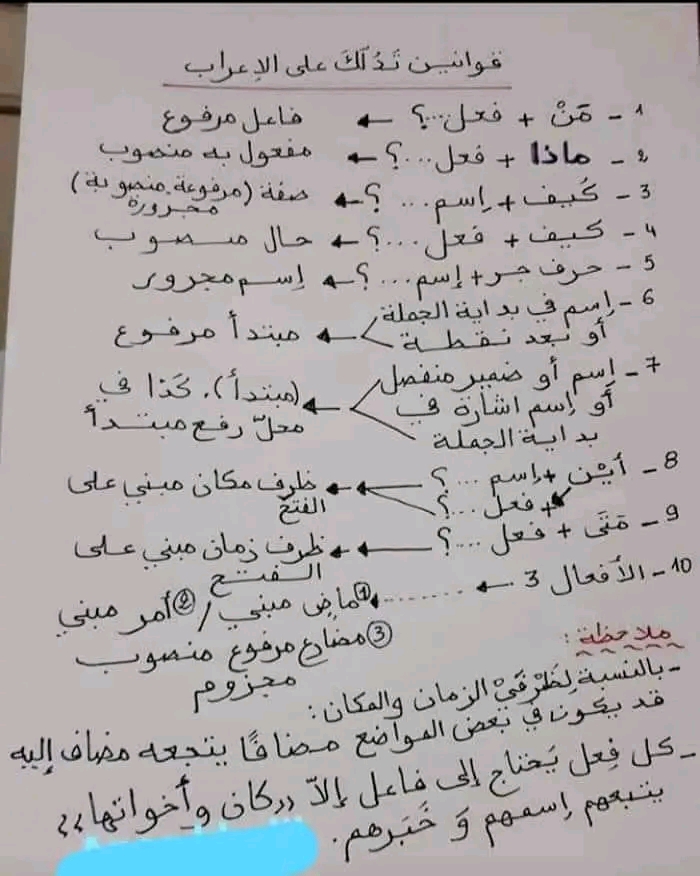 قوانين تَدُلّكَ على الإعراب
1 - مَنْ + فعل...؟ ← فاعل مرفوع
2 - ماذا + فعل...؟ ← مفعول به منصوب
3 - كَيف + إسم...؟ ← صفة (مرفوعة. منصوبة)
مجرورة
4 - كيف + فعل...؟ ← حال منصوب
5 - حرف جر + إسم...؟ ← إسم مجرور
6 - إسم في بداية الجملة
أو بعد نقطة ← مبتدأ مرفوع
7 - إسم أو ضمير منفصل
أو إسم اشارة في
بداية الجملة
← (مبتدأ). كَذا في
محلّ رفع مبتدأ
8 - أيْن + إسم...؟
+ فعل...؟
← ظرف مكان مبني على
الفتح
9 - مَتَى + فعل...؟ ← ظرف زمان مبني على
الفتح
10 - الأفعال 3 ← ........ ① ماضٍ مبني / ② أمر مبني
③ مضارع مرفوع منصوب
مجزوم
ملاحظة:
- بالنسبة لِظَرْفَيْ الزمان والمكان:
قد يكون في بعض المواضع مضافًا يتجعه مضاف إليه
- كل فِعل يَحتاج إلى فاعل إلاّ ,,كان وأخواتها,,
يتبعهم إسمهم وَ خَبَرهم.